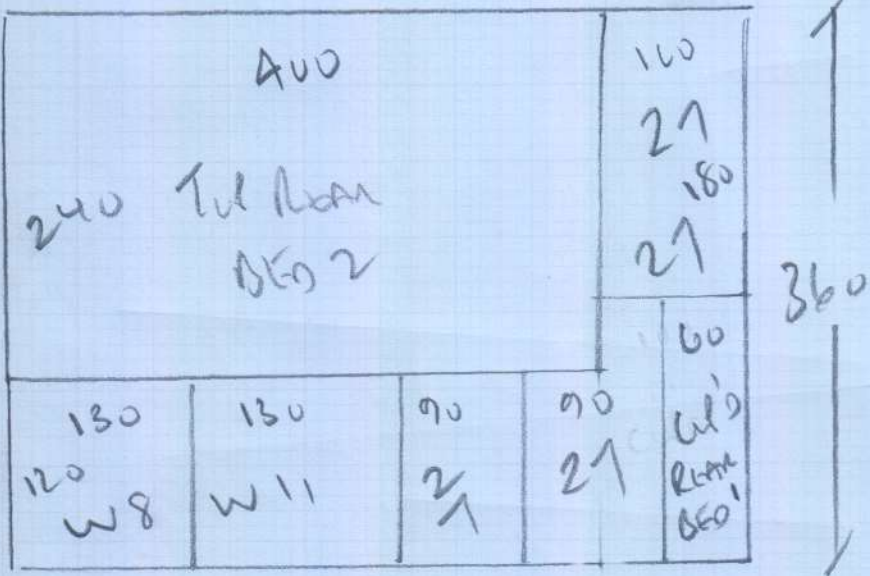 400
240
REAR
BED 2
100
21
180
21
360
130
120
W8
130
W11
90
2
1
90
21
60
CUP'D
REAR
BED 1